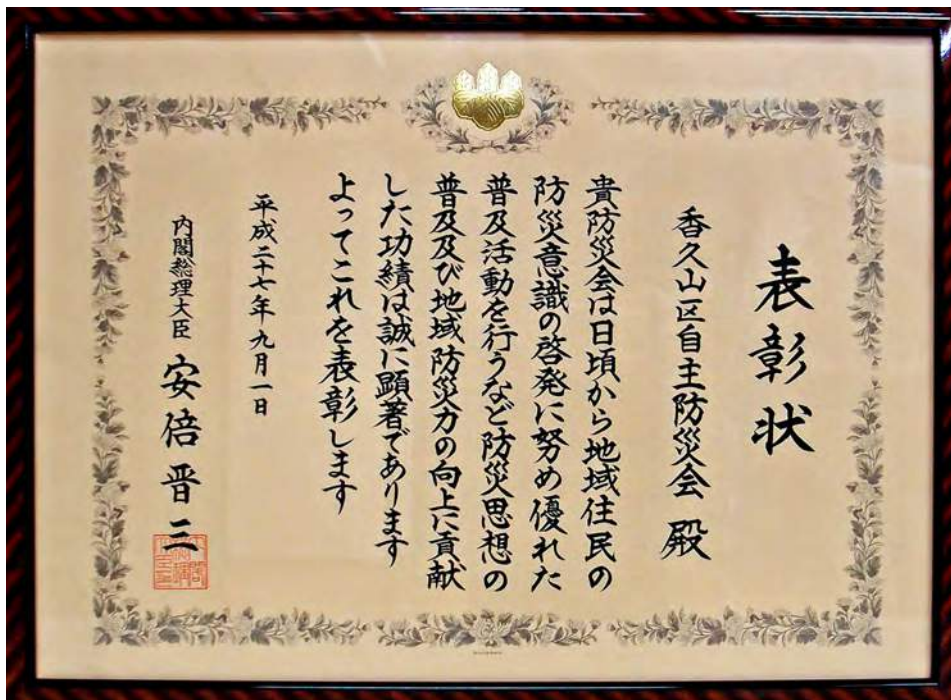 表彰状
香久山区自主防災会 殿
貴防災会は日頃から地域住民の
防災意識の啓発に努め優れた
普及活動を行うなど防災思想の
普及及び地域防災力の向上に貢献
した功績は誠に顕著であります
よってこれを表彰します
平成二十七年九月一日
内閣総理大臣 安倍晋三